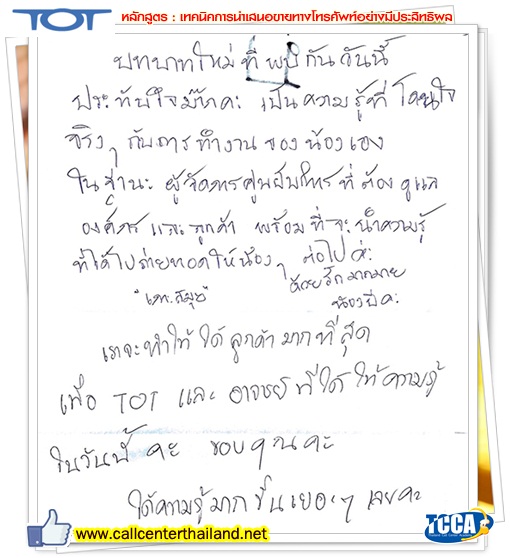 TOT
หลักสูตร : เทคนิคการนำเสนอขายทางโทรศัพท์อย่างมีประสิทธิพล
บทบาทใหม่ ที่ พบ กันวันนี้
ประทับใจม๊ากคะ เป็นความรู้ที่ โดนใจ
จริงๆ กับการ ทำงาน ของ น้องเอง
ใน ฐานะ ผู้จัดการศูนย์บริการ ที่ ต้อง ดูแล
องค์กร และ ลูกค้า พร้อมที่จะนำความรู้
ที่ได้ไปถ่ายทอดให้น้องๆ ต่อไป ค่ะ
ด้วยรักมากมาย
"เกาะสมุย" น้องปีคะ
เราจะทำให้ ได้ ลูกค้า มาก ที่ สุด
เพื่อ TOT และ อาจารย์ ที่ได้ ให้ความรู้
ในวันนี้ คะ ขอบคุณคะ
ได้ความรู้มากขึ้นเยอะๆ เลยคะ
www.callcenterthailand.net
TCCA